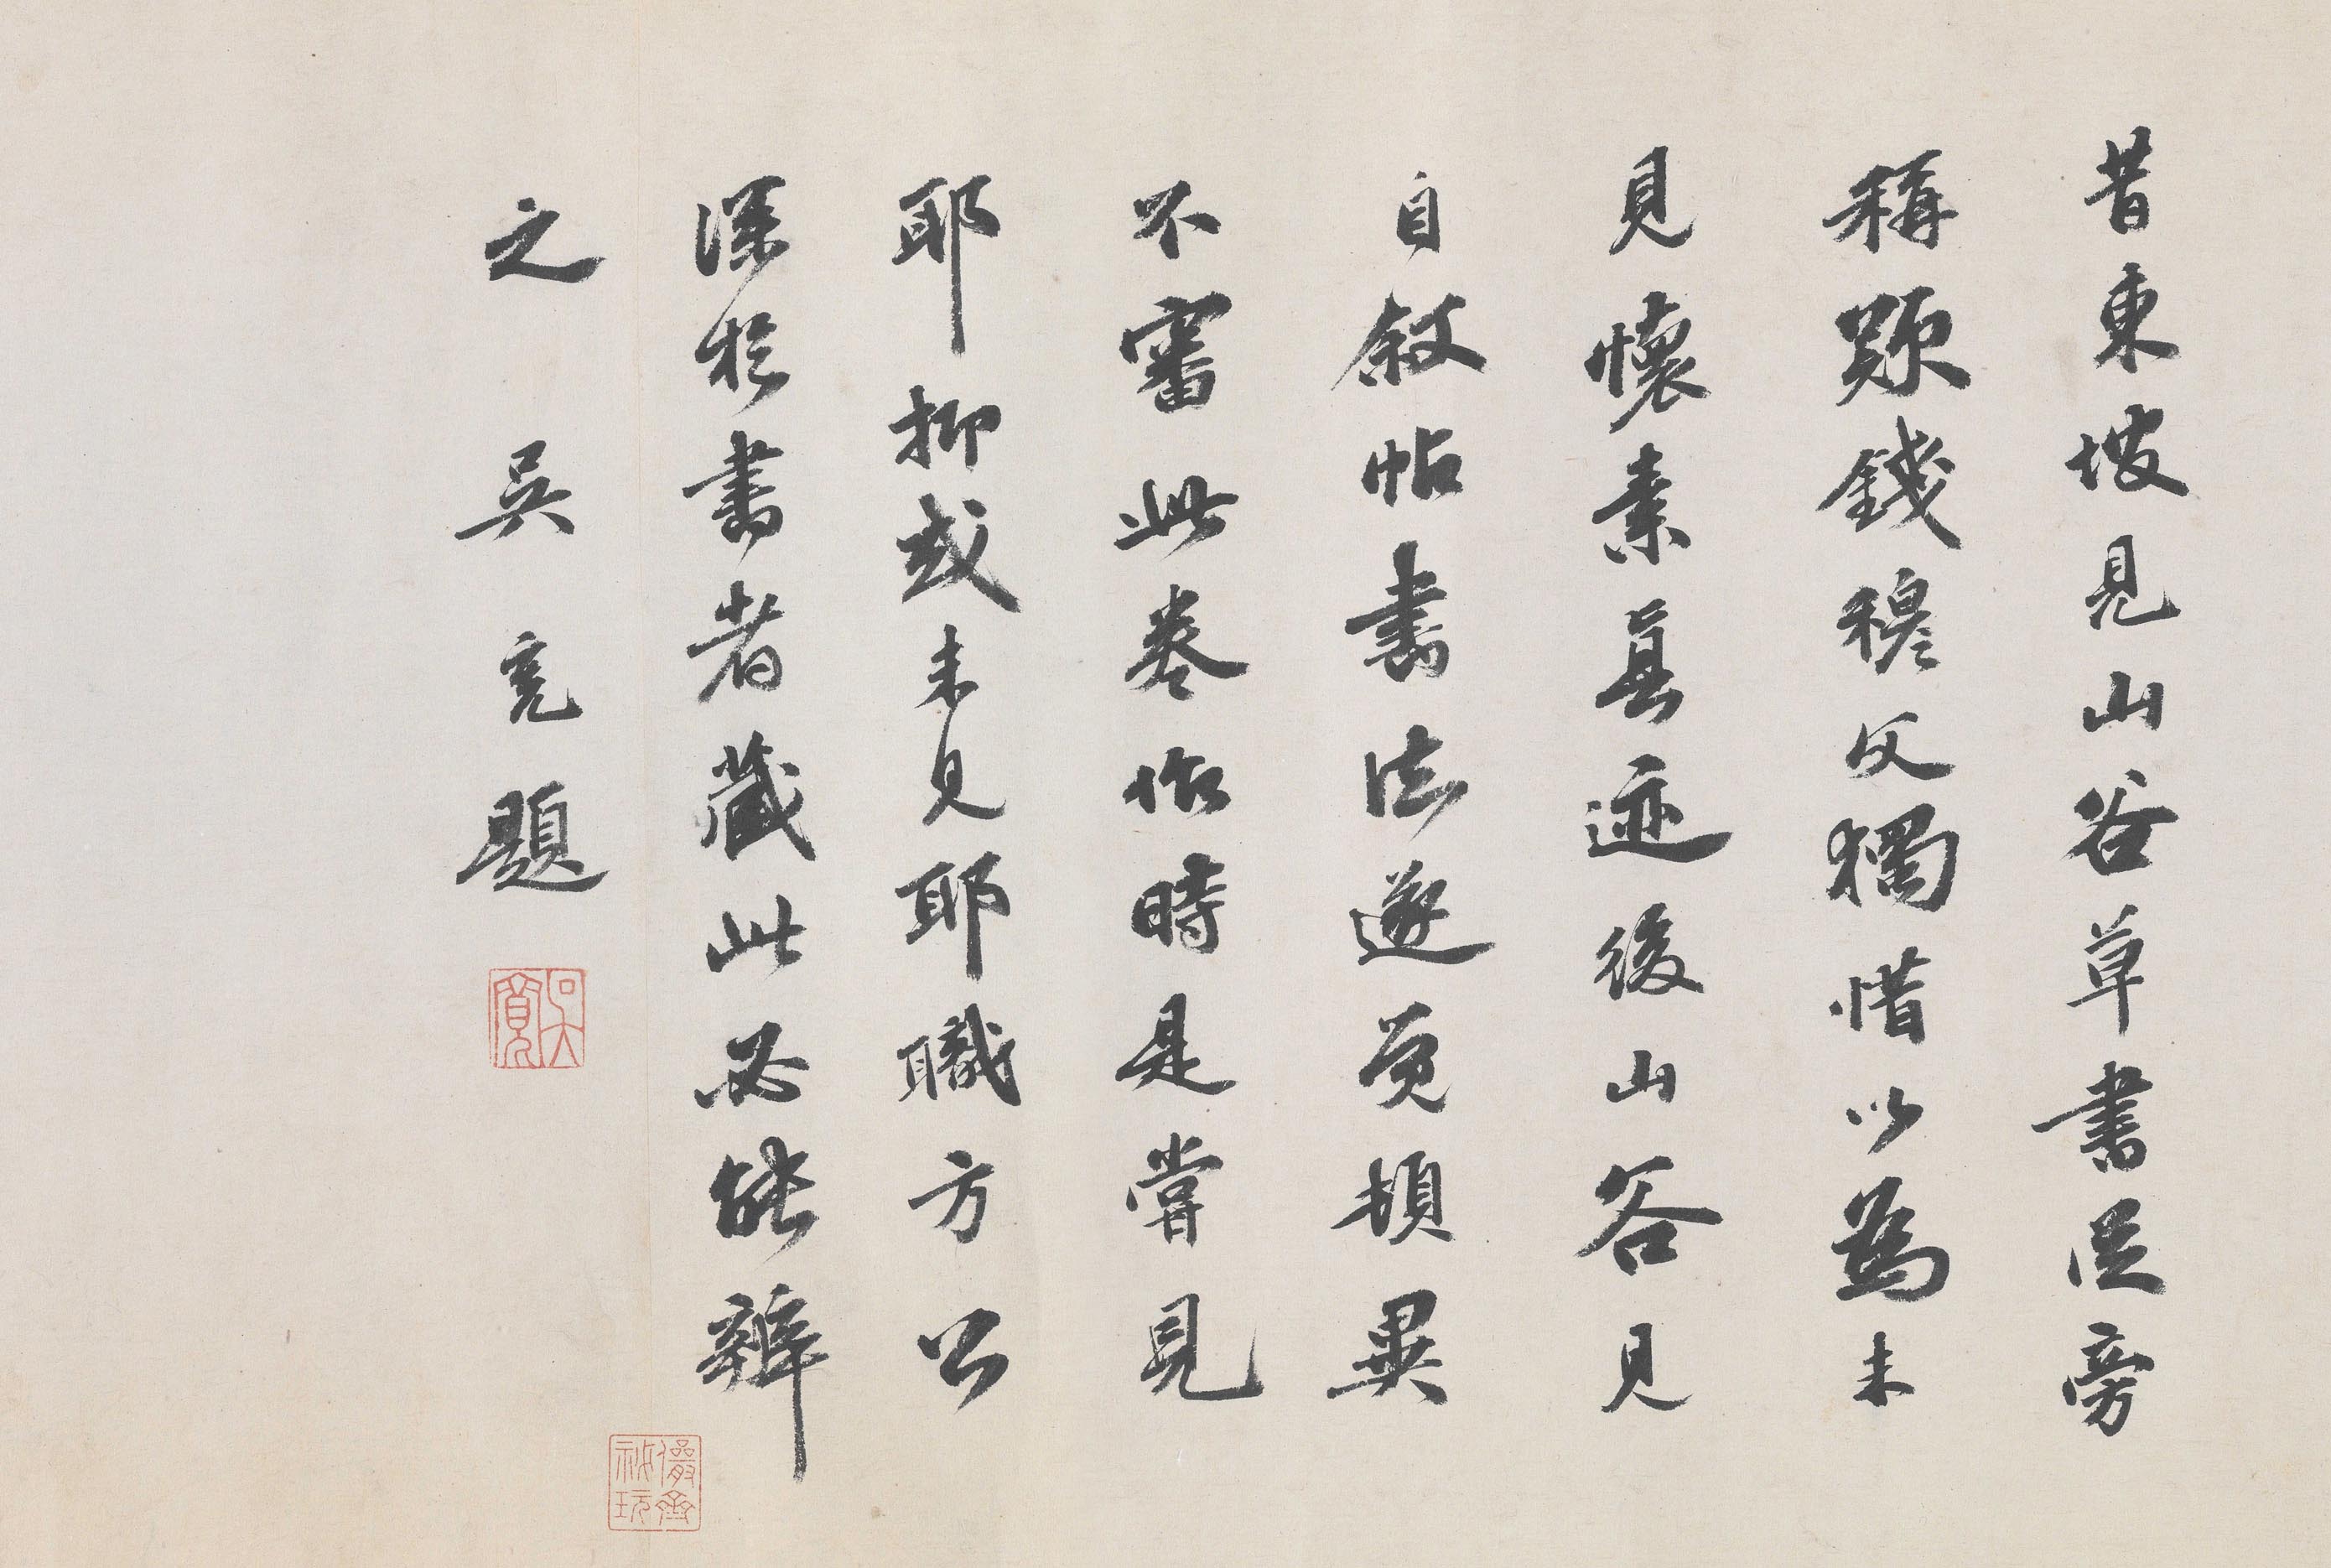 昔東坡見山谷草書從旁
稱歎錢穆父獨惜以為未
見懷素真迹後山谷見
自敘帖書法遂覺頓異
不審此卷作時是嘗見
耶抑或未見耶職方公
深於書者藏此必能辨
之 吳寬題
吳寬
儼齋祕玩